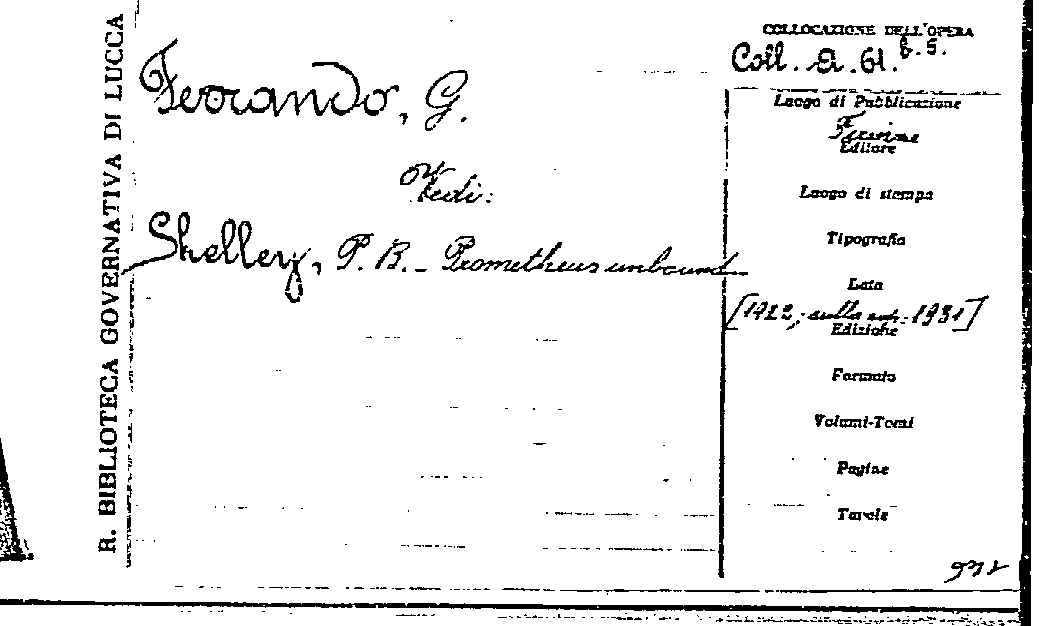 R. BIBLIOTECA GOVERNATIVA DI LUCCA
Ferrando, G.
Vedi:
Shelley, P. B. - Prometheus unbound
COLLOCAZIONE DELL'OPERA
Coll. A. 61. b.5.
Luogo di Pubblicazione
Firenze
Editore
Luogo di stampa
Tipografia
Data
[1922; sulla cop. 1931]
Edizione
Formato
Volumi-Tomi
Pagine
Tavole